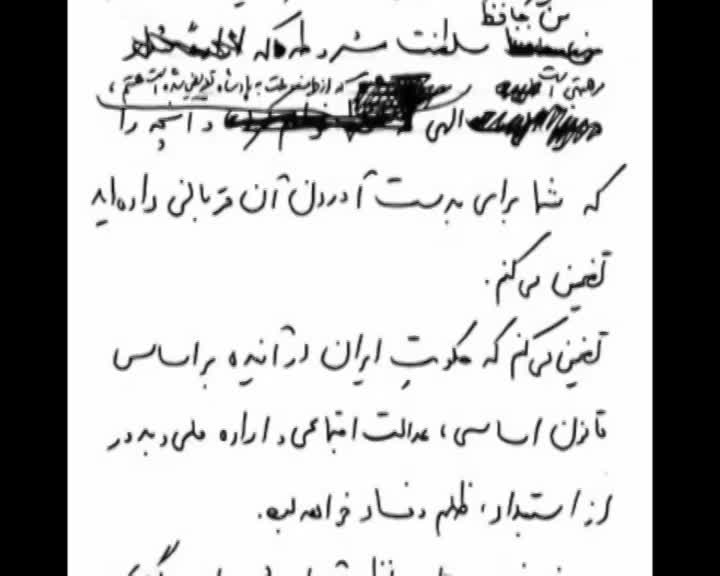 من حافظ
سلطنت مشروطه که
موهبتی است که از طرف ملت به پادشاه تفویض شده است هستم،
الهی و آنچه را
که شما برای بدست آوردن آن قربانی داده‌اید
تضمین می‌کنم.
تضمین می‌کنم که حکومت ایران در آینده بر اساس
قانون اساسی، عدالت اجتماعی و اراده ملی و به دور
از استبداد، ظلم و فساد خواهد بود.